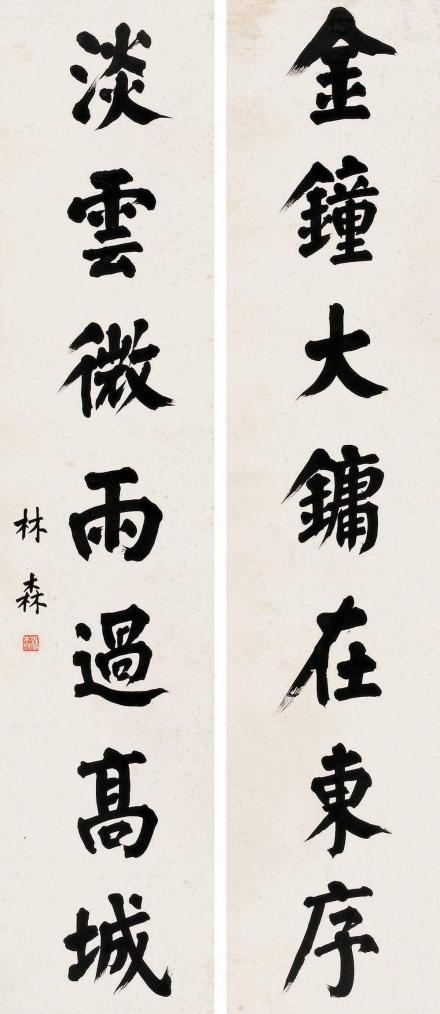 金鐘大鏞在東序
淡雲微雨過髙城
林森